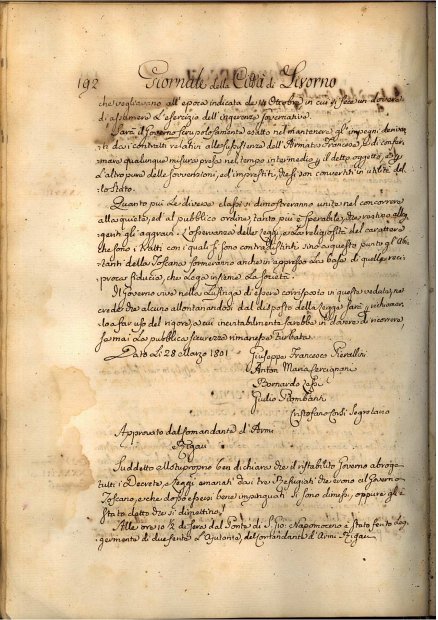 192 Giornale della Città di Livorno
che vegliavano all'epoca indicata de 14 Ottobre in cui si fece un dovere
di assumere l'esercizio dell'ingerenze governative.
Sarà il Governo scrupolosamente esatto nel mantenere gl'impegni
dai contratti relativi alla sussistenza dell'Armata Francese, e di confer-
mare qualunque misura presa nel tempo intermedio p il detto oggetto,
l'altro pure delle sovvenzioni, ed imprestiti, che si son convertiti in utilità del-
lo Stato.
Quanto più le diverse classi si dimostreranno unite nel concorrere
alla quiete, ed al pubblico ordine, tanto più è sperabile, che
gli aggravi. L'osservanza delle Leggi, e la religiosità del carattere
che sono i tratti con i quali si sono contradistinti sino a questo punto gl'Abi-
tanti della Toscana formeranno anche in appresso la base di quella reci-
proca fiducia, che lega insieme la società.
Il Governo vive nella lusinga di essere corrisposto in queste vedute, ne
crede che alcuno allontanandosi dal disposto della Legge sarà p richiamar-
lo a far uso del rigore, a cui inevitabilmente sarebbe in dovere di ricorrere,
se mai la pubblica sicurezza rimanesse turbata.
Dato Li 28 Marzo 1801
Giuseppe Francesco Pierallini
Anton Maria Cercignani
Bernardo
Giulio Piombanti
Cristofano Segretario
Approvato dal Comandante d'Armi
Rigau
Suddetto allo stesso proposito ben dichiara che il ristabilito Governo abroga
tutti i Decreti, e Leggi emanati dai tre Refugiati che erono al Governo
Toscano, e che dopo essersi bene impinguati si sono dimessi, oppure gl'è
stato detto che si dimettino!
Alle ore 10 ½ di sera dal Ponte di S. Gio: Napomoceno è stato ferito leg-
germente di due ferite l'Ajutante, del Comandante d'Armi Rigau